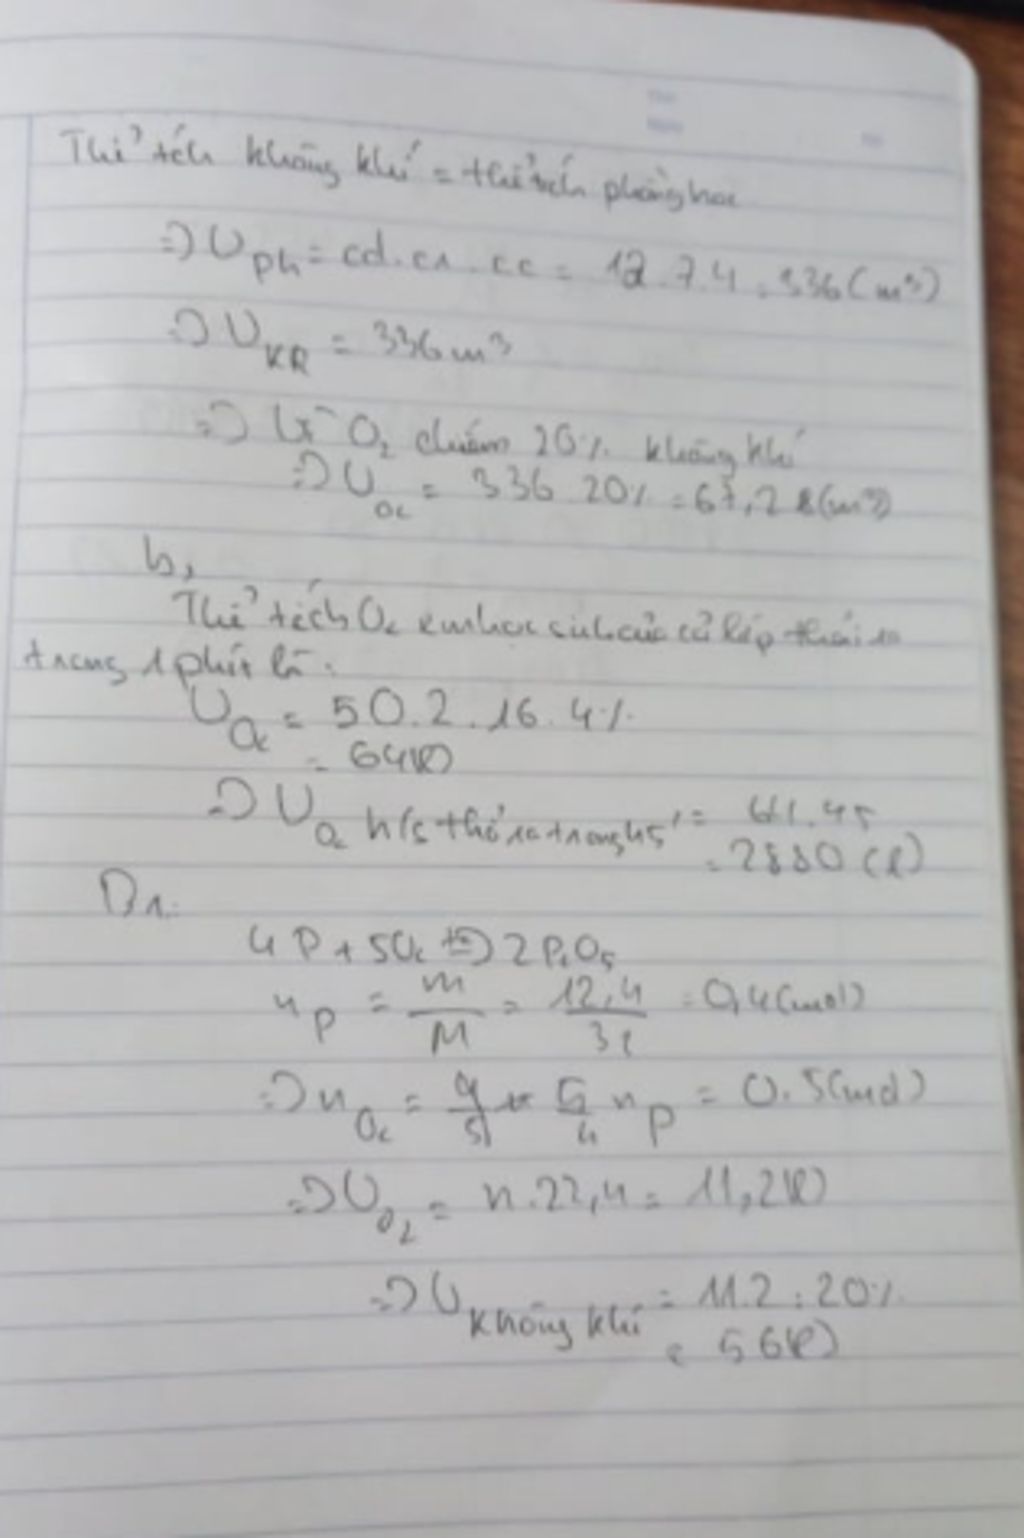 Thể tích không khí = thể tích phòng học
=> V ph = cd . cr . cc = 12 . 7 . 4 = 336 (m³)
=> V KK = 336 m³
=> Vì O₂ chiếm 20% không khí
=> V O₂ = 336 . 20% = 67,2 (m³)
b,
Thể tích O₂ em học sinh của cả lớp thải ra
trong 1 phút là:
V O₂ = 50 . 2 . 16 . 4%
= 64 (l)
=> V O₂ h/s thở ra trong 45' = 64 . 45
= 2880 (l)
4P + 5O₂ => 2P₂O₅
n P = m/M = 12,4/31 = 0,4 (mol)
=> n O₂ = 5/4 n P = 0.5 (mol)
=> V O₂ = n . 22,4 = 11,2 (l)
=> V không khí = 11.2 : 20%
= 56 (l)